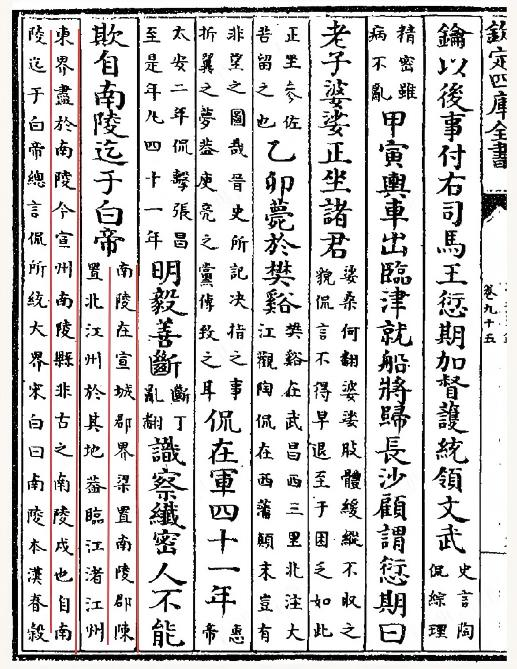 欽定四庫全書
卷九十五
鑰以後事付右司馬王愆期加督護統領文武史言陶侃綜理
精密雖病不亂甲寅輿車出臨津就船將歸長沙顧謂愆期曰
老子婆娑正坐諸君婆桑何翻婆娑肢體緩縱不收之貌侃言不得早退至于困乏如此
正坐參佐苦留之也乙卯薨於樊谿樊谿在武昌西三里北注大江觀陶侃在西藩顛末豈有
非望之圖哉晉史所記决指之事折翼之夢葢庾亮之黨傳致之耳侃在軍四十一年惠帝
太安二年侃擊張昌至是年凡四十一年明毅善斷斷丁亂翻識察纎密人不能
欺自南陵迄于白帝南陵在宣城郡界梁置南陵郡陳置北江州於其地葢臨江渚江州
東界盡於南陵今宣州南陵縣非古之南陵戍也自南陵迄于白帝總言侃所統大界宋白曰南陵本漢春穀